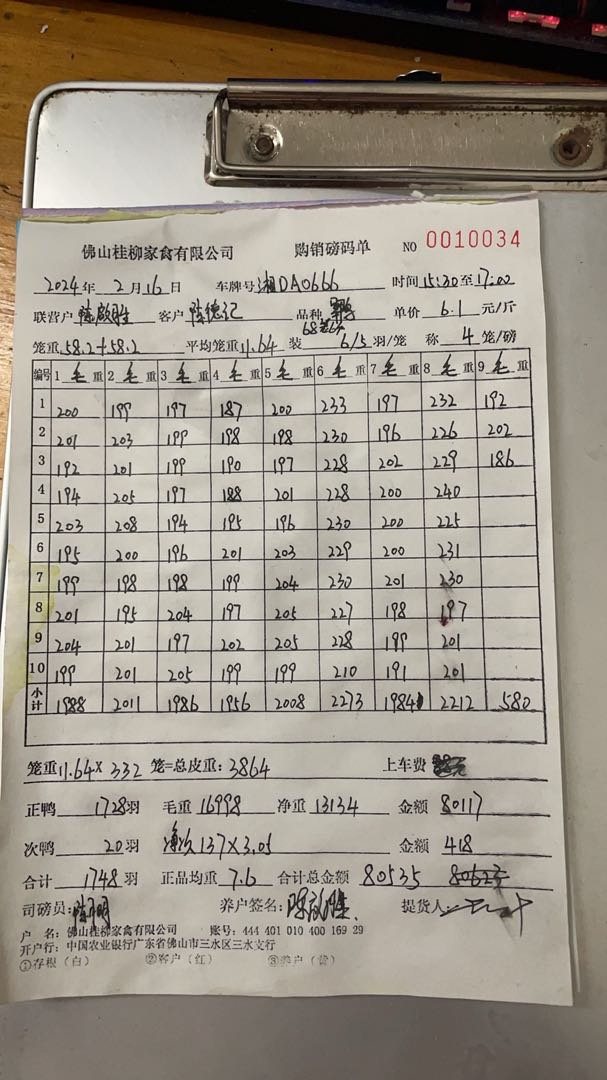 佛山桂柳家禽有限公司 购销磅码单 NO 0010034
2024年 2月16日 车牌号 湘DA0666 时间 15:30至17:00
联营户 陈啟胜 客户 陈德记 品种 单价 6.1 元/斤
笼重 58.2+58.2 平均笼重 11.64 装 6/5 羽/笼 称 4 笼/磅
编号 1 毛 重 2 毛 重 3 毛 重 4 毛 重 5 毛 重 6 毛 重 7 毛 重 8 毛 重 9 毛 重
1 200 199 197 187 200 233 197 232 192
2 201 203 199 198 198 230 196 226 202
3 192 201 199 190 197 228 202 229 186
4 194 205 197 188 201 228 200 240
5 203 208 194 195 196 230 200 225
6 195 200 196 201 203 229 200 231
7 199 198 198 199 204 230 201 230
8 201 195 204 197 205 227 198 197
9 204 201 197 202 205 228 199 201
10 199 201 205 199 199 210 191 201
小计 1988 2011 1986 1956 2008 2273 1984 2212 580
笼重 11.64× 332 笼=总皮重: 3864 上车费
正鸭 1728羽 毛重 16998 净重 13134 金额 80117
次鸭 20羽 净次 137×3.05 金额 418
合计 1748羽 正品均重 7.6 合计总金额 80535
司磅员: 养户签名: 陈啟胜 提货人
户 名: 佛山桂柳家禽有限公司 账号: 444 401 010 400 169 29
开户行: 中国农业银行广东省佛山市三水区三水支行
①存根（白） ②客户（红） ③养户（黄）